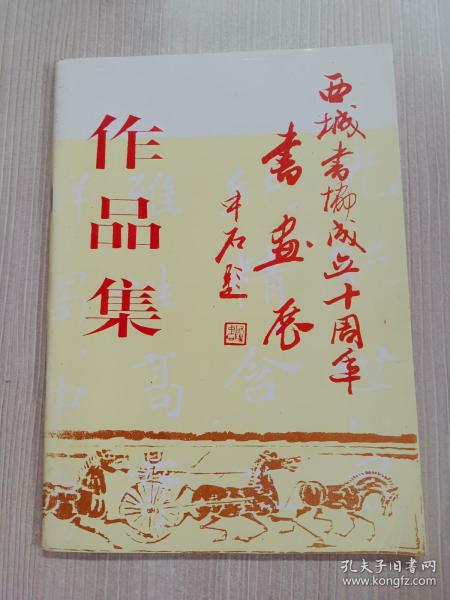 西城书协成立十周年
书画展
中石题
作品集
孔夫子旧书网
www.kongfz.com